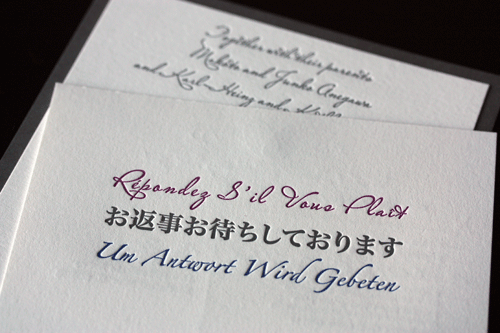 Together with their parents
Makito and Junko Amagawa
and Karl-Heinz and
Répondez S'il Vous Plait
お返事お待ちしております
Um Antwort Wird Gebeten